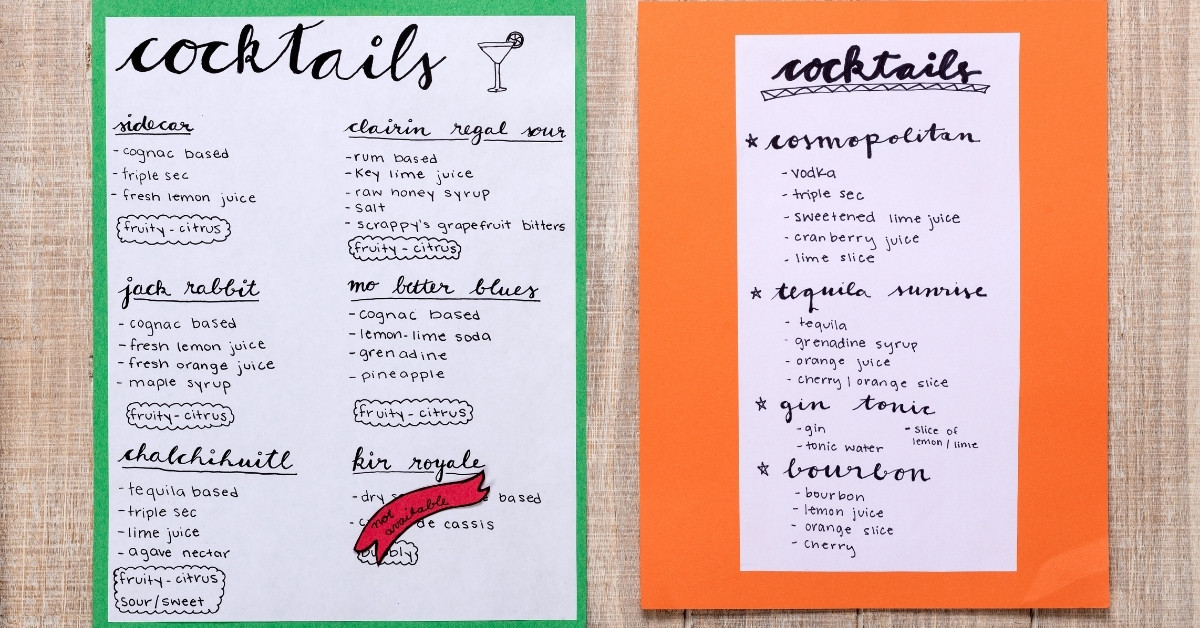 cocktails
sidecar
- cognac based
- triple sec
- fresh lemon juice
fruity-citrus
jack rabbit
- cognac based
- fresh lemon juice
- fresh orange juice
- maple syrup
fruity-citrus
chalchihuitl
- tequila based
- triple sec
- lime juice
- agave nectar
fruity-citrus
sour/sweet
clairin regal sour
- rum based
- Key lime juice
- raw honey syrup
- salt
- scrappy's grapefruit bitters
fruity-citrus
mo better blues
- cognac based
- lemon-lime soda
- grenadine
- pineapple
fruity-citrus
kir royale
- dry based
- de cassis
not
available
cocktails
cosmopolitan
- vodka
- triple sec
- sweetened lime juice
- cranberry juice
- lime slice
tequila sunrise
- tequila
- grenadine syrup
- orange juice
- cherry/orange slice
gin tonic
- gin
- tonic water
- slice of
lemon/lime
bourbon
- bourbon
- lemon juice
- orange slice
- cherry